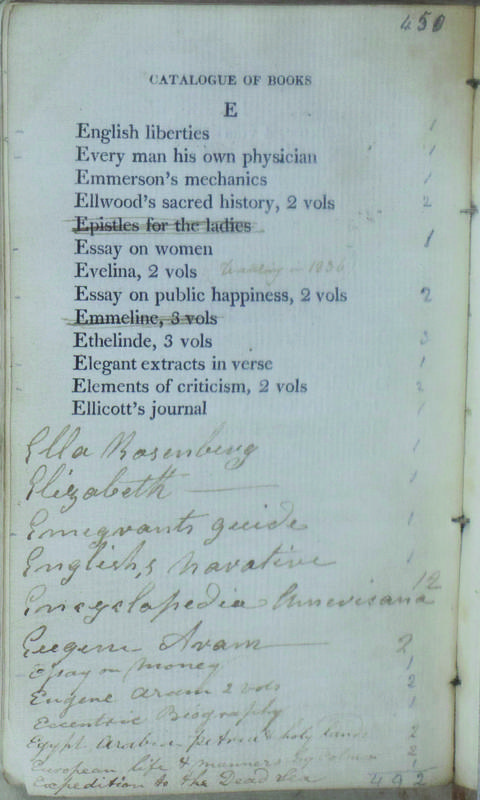 450
CATALOGUE OF BOOKS
E
English liberties 1
Every man his own physician 1
Emmerson's mechanics 1
Ellwood's sacred history, 2 vols 2
Epistles for the ladies
Essay on women 1
Evelina, 2 vols in 1836
Essay on public happiness, 2 vols 2
Emmeline, 3 vols
Ethelinde, 3 vols 3
Elegant extracts in verse 1
Elements of criticism, 2 vols 2
Ellicott's journal 1
Ella Rosenberg 1
Elizabeth 1
Emegrants guide 1
English,s narative 1
Encyclopedia Amerisana 12
Eugene Aram 2
Essay on Money 1
Eugene Aram 2 vols 2
Eccentric Biography 1
Egypt Arabia petrea & holy land 2
European life & manners by 2
Expedition to the Dead Sea 1
492